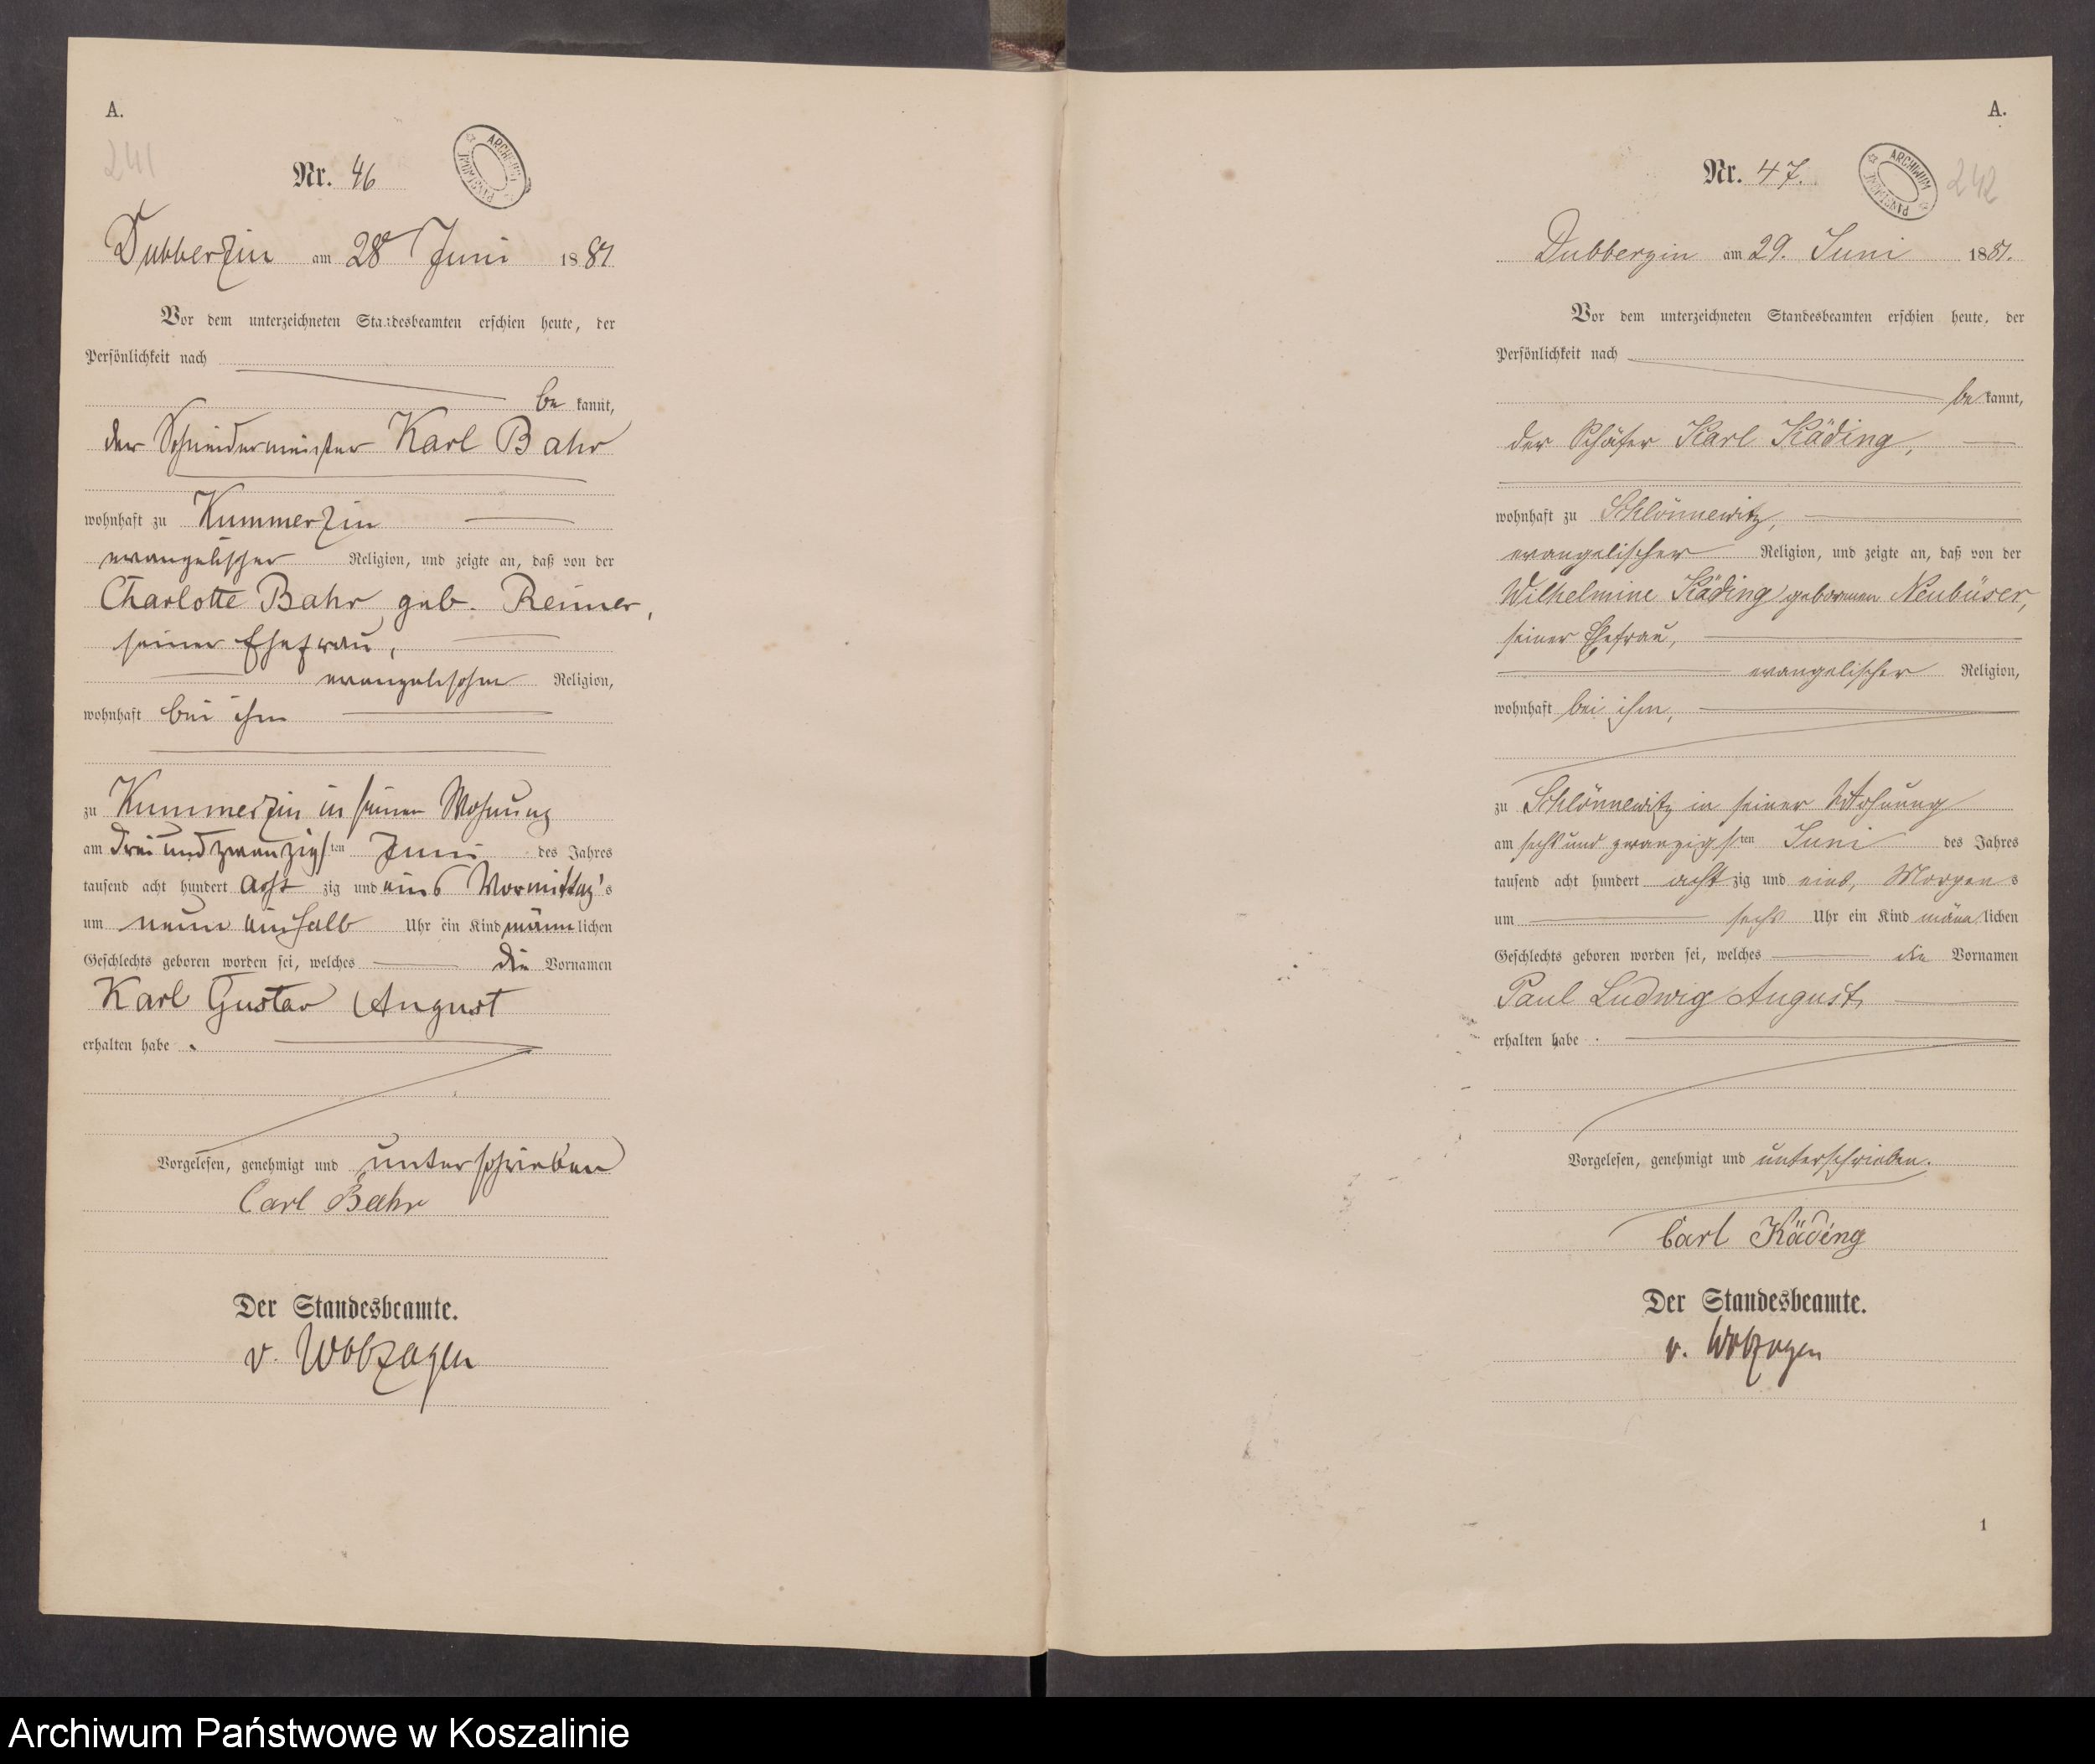 A.
241
Nr. 46
ARCHIWUM PAŃSTWOWE
Dubberzin am 28 Juni 1881
Vor dem unterzeichneten Standesbeamten erschien heute, der
Persönlichkeit nach
be kannt,
der Schneidermeister Karl Bahr
wohnhaft zu Kummerzin
evangelischer Religion, und zeigte an, daß von der
Charlotte Bahr geb. Reimer,
seiner Ehefrau,
evangelischer Religion,
wohnhaft bei ihm
zu Kummerzin in seiner Wohnung
am drei und zwanzigsten Juni des Jahres
tausend acht hundert acht zig und eins Vormittag's
um neun einhalb Uhr ein Kind männlichen
Geschlechts geboren worden sei, welches die Vornamen
Karl Gustav August
erhalten habe.
Vorgelesen, genehmigt und unterschrieben
Carl Bahr
Der Standesbeamte.
v. Wolzogen
A.
Nr. 47.
ARCHIWUM PAŃSTWOWE
242
Dubberzin am 29. Juni 1881.
Vor dem unterzeichneten Standesbeamten erschien heute, der
Persönlichkeit nach
be kannt,
der Schäfer Karl Käding,
wohnhaft zu Schlönnewitz,
evangelischer Religion, und zeigte an, daß von der
Wilhelmine Käding geborenen Neubüser,
seiner Ehefrau,
evangelischer Religion,
wohnhaft bei ihm,
zu Schlönnewitz in seiner Wohnung
am sechs und zwanzigsten Juni des Jahres
tausend acht hundert acht zig und eins, Morgens
um sechs Uhr ein Kind männlichen
Geschlechts geboren worden sei, welches die Vornamen
Paul Ludwig August,
erhalten habe.
Vorgelesen, genehmigt und unterschrieben.
Carl Käding
Der Standesbeamte.
v. Wolzogen
1
Archiwum Państwowe w Koszalinie